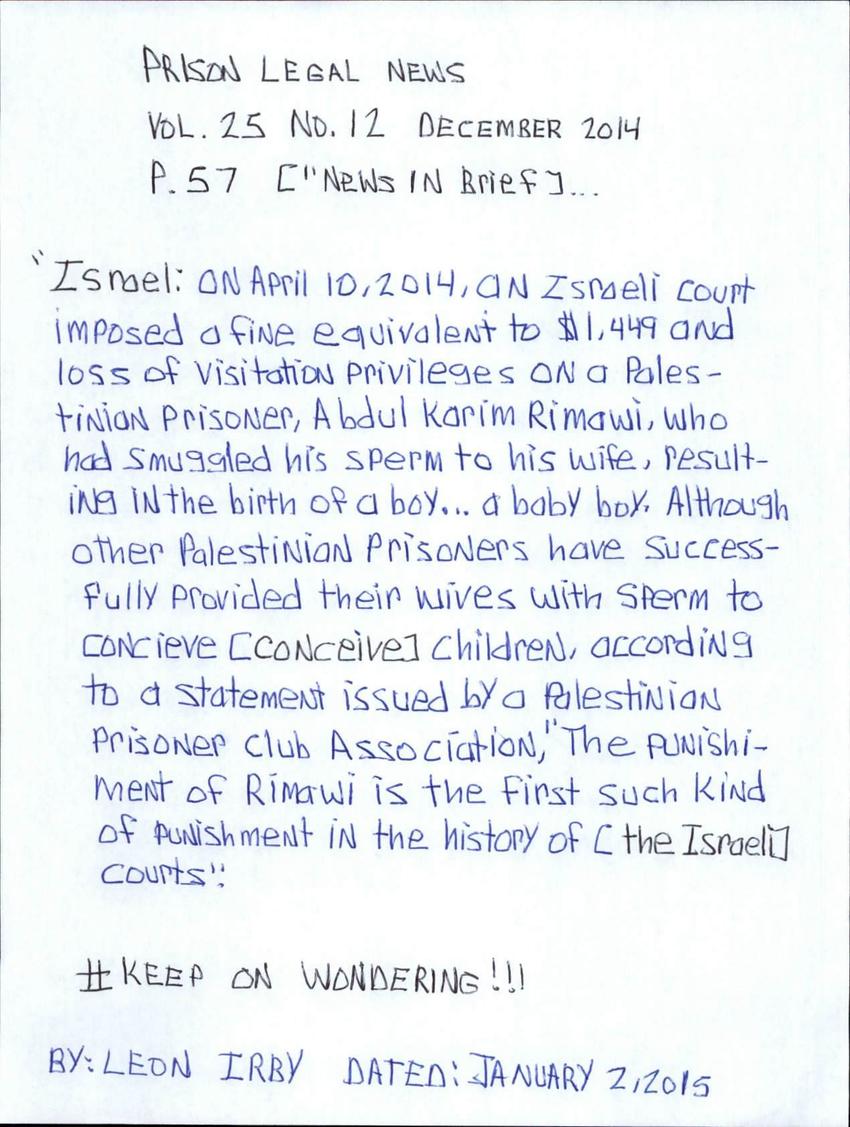 PRISON LEGAL NEWS
VOL. 25 NO. 12 DECEMBER 2014
P. 57 ["News IN Brief]...
"Israel: ON April 10, 2014, an Israeli court
imposed a fine equivalent to $1,449 and
loss of visitation privileges on a Pales-
tinian prisoner, Abdul Karim Rimawi, who
had smuggled his sperm to his wife, result-
ing in the birth of a boy... a baby boy. Although
other Palestinian Prisoners have success-
fully provided their wives with sperm to
concieve [conceive] children, according
to a statement issued by a Palestinian
Prisoner Club Association, "The punishi-
ment of Rimawi is the first such kind
of punishment in the history of [the Israeli]
courts".
#KEEP ON WONDERING!!!
BY: LEON IRBY DATED: JANUARY 2, 2015